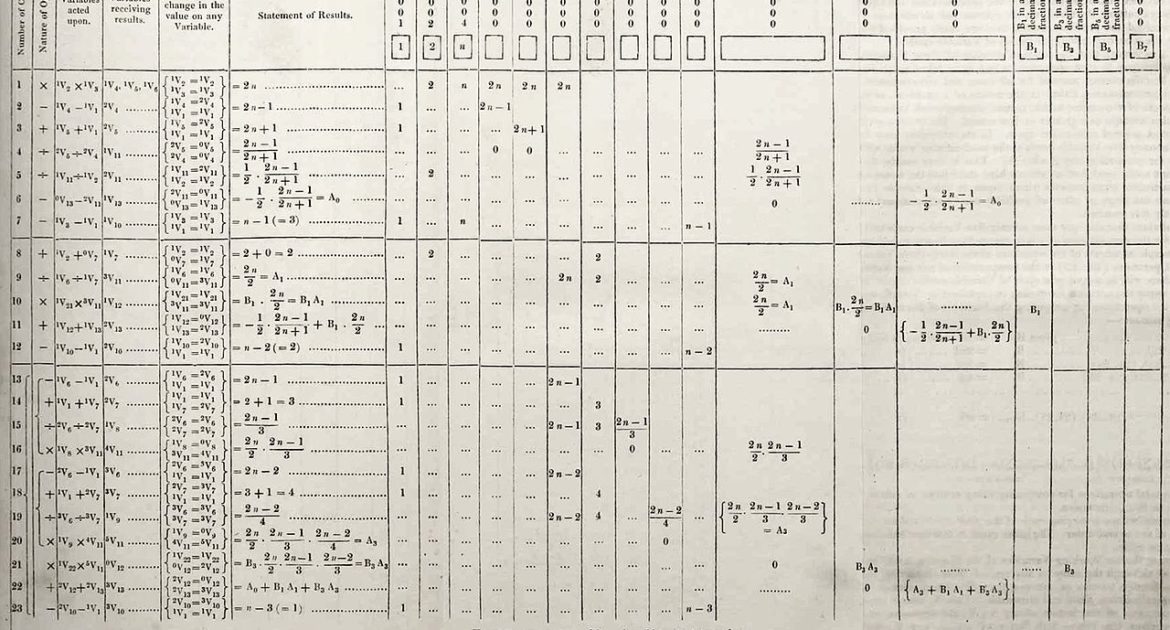 Number of
Nature of O
Variables acted upon.
Variables receiving results.
change in the value on any Variable.
Statement of Results.
0 0 0 0 0 0 0 0 0 0 0 0 0
0 0 0 0 0 0 0 0 0 0 0 0 0
1 2 4 0 0 0 0 0 0 0 0 0 0
B₁ in a decimal fraction B₃ in a decimal fraction B₅ in a decimal fraction
1 2 n B₁ B₃ B₅ B₇
1 × ¹V₂ × ¹V₃ ¹V₄, ¹V₅, ¹V₆ { ¹V₂ = ¹V₂ ¹V₃ = ¹V₃ } = 2n ... 2 n 2n 2n 2n
2 − ¹V₄ − ¹V₁ ²V₄ { ¹V₄ = ²V₄ ¹V₁ = ¹V₁ } = 2n − 1 1 ... ... 2n − 1
3 + ¹V₅ + ¹V₁ ²V₅ { ¹V₅ = ²V₅ ¹V₁ = ¹V₁ } = 2n + 1 1 ... ... ... 2n + 1
4 ÷ ²V₅ ÷ ²V₄ ¹V₁₁ { ²V₅ = ⁰V₅ ²V₄ = ⁰V₄ } = (2n − 1)/(2n + 1) ... ... ... 0 0 ... ... ... ... ... (2n − 1)/(2n + 1)
5 ÷ ¹V₁₁ ÷ ¹V₂ ²V₁₁ { ¹V₁₁ = ²V₁₁ ¹V₂ = ¹V₂ } = 1/2 · (2n − 1)/(2n + 1) ... 2 ... ... ... ... ... ... ... ... 1/2 · (2n − 1)/(2n + 1)
6 − ⁰V₁₃ − ²V₁₁ ¹V₁₃ { ²V₁₁ = ⁰V₁₁ ⁰V₁₃ = ¹V₁₃ } = − 1/2 · (2n − 1)/(2n + 1) = A₀ ... ... ... ... ... ... ... ... ... ... 0 ... − 1/2 · (2n − 1)/(2n + 1) = A₀
7 − ¹V₃ − ¹V₁ ¹V₁₀ { ¹V₃ = ¹V₃ ¹V₁ = ¹V₁ } = n − 1 (= 3) 1 ... n ... ... ... ... ... ... n − 1
8 + ¹V₂ + ⁰V₇ ¹V₇ { ¹V₂ = ¹V₂ ⁰V₇ = ¹V₇ } = 2 + 0 = 2 ... 2 ... ... ... ... 2
9 ÷ ¹V₆ ÷ ¹V₇ ³V₁₁ { ¹V₆ = ¹V₆ ⁰V₁₁ = ³V₁₁ } = 2n/2 = A₁ ... ... ... ... ... 2n 2 ... ... ... 2n/2 = A₁
10 × ¹V₂₁ × ³V₁₁ ¹V₁₂ { ¹V₂₁ = ¹V₂₁ ³V₁₁ = ³V₁₁ } = B₁ · 2n/2 = B₁ A₁ ... ... ... ... ... ... ... ... ... ... 2n/2 = A₁ B₁ · 2n/2 = B₁ A₁ ... B₁
11 + ¹V₁₂ + ¹V₁₃ ²V₁₃ { ¹V₁₂ = ⁰V₁₂ ¹V₁₃ = ²V₁₃ } = − 1/2 · (2n − 1)/(2n + 1) + B₁ · 2n/2 ... ... ... ... ... ... ... ... ... ... ... 0 { − 1/2 · (2n − 1)/(2n + 1) + B₁ · 2n/2 }
12 − ¹V₁₀ − ¹V₁ ²V₁₀ { ¹V₁₀ = ²V₁₀ ¹V₁ = ¹V₁ } = n − 2 (= 2) 1 ... ... ... ... ... ... ... ... n − 2
13 − ¹V₆ − ¹V₁ ²V₆ { ¹V₆ = ²V₆ ¹V₁ = ¹V₁ } = 2n − 1 1 ... ... ... ... 2n − 1
14 + ¹V₁ + ¹V₇ ²V₇ { ¹V₁ = ¹V₁ ¹V₇ = ²V₇ } = 2 + 1 = 3 1 ... ... ... ... ... 3
15 ÷ ²V₆ ÷ ²V₇ ¹V₈ { ²V₆ = ²V₆ ²V₇ = ²V₇ } = (2n − 1)/3 ... ... ... ... ... 2n − 1 3 (2n − 1)/3
16 × ¹V₈ × ³V₁₁ ⁴V₁₁ { ¹V₈ = ⁰V₈ ³V₁₁ = ⁴V₁₁ } = 2n/2 · (2n − 1)/3 ... ... ... ... ... ... ... 0 ... ... 2n/2 · (2n − 1)/3
17 − ²V₆ − ¹V₁ ³V₆ { ²V₆ = ³V₆ ¹V₁ = ¹V₁ } = 2n − 2 1 ... ... ... ... 2n − 2
18 + ¹V₁ + ²V₇ ³V₇ { ²V₇ = ³V₇ ¹V₁ = ¹V₁ } = 3 + 1 = 4 1 ... ... ... ... ... 4
19 ÷ ³V₆ ÷ ³V₇ ¹V₉ { ³V₆ = ³V₆ ³V₇ = ³V₇ } = (2n − 2)/4 ... ... ... ... ... 2n − 2 4 ... (2n − 2)/4 ... { 2n/2 · (2n − 1)/3 · (2n − 2)/3 } = A₃
20 × ¹V₉ × ⁴V₁₁ ⁵V₁₁ { ¹V₉ = ⁰V₉ ⁴V₁₁ = ⁵V₁₁ } = 2n/2 · (2n − 1)/3 · (2n − 2)/4 = A₃ ... ... ... ... ... ... ... ... 0 ...
21 × ¹V₂₂ × ⁵V₁₁ ⁰V₁₂ { ¹V₂₂ = ¹V₂₂ ⁰V₁₂ = ²V₁₂ } = B₃ · 2n/2 · (2n − 1)/3 · (2n − 2)/3 = B₃ A₃ ... ... ... ... ... ... ... ... ... ... 0 B₃ A₃ ... B₃
22 + ²V₁₂ + ²V₁₃ ³V₁₃ { ²V₁₂ = ⁰V₁₂ ²V₁₃ = ³V₁₃ } = A₀ + B₁ A₁ + B₃ A₃ ... ... ... ... ... ... ... ... ... ... ... 0 { A₃ + B₁ A₁ + B₃ A₃ }
23 − ²V₁₀ − ¹V₁ ³V₁₀ { ²V₁₀ = ³V₁₀ ¹V₁ = ¹V₁ } = n − 3 (= 1) 1 ... ... ... ... ... ... ... ... n − 3